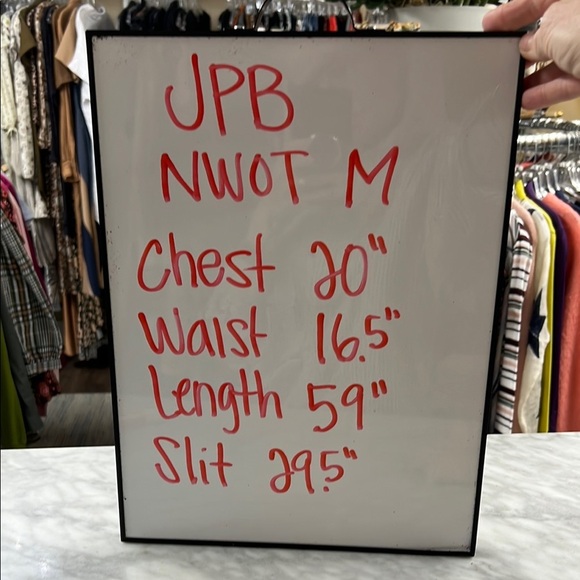 JPB
NWOT M
Chest 20"
Waist 16.5"
Length 59"
Slit 29.5"